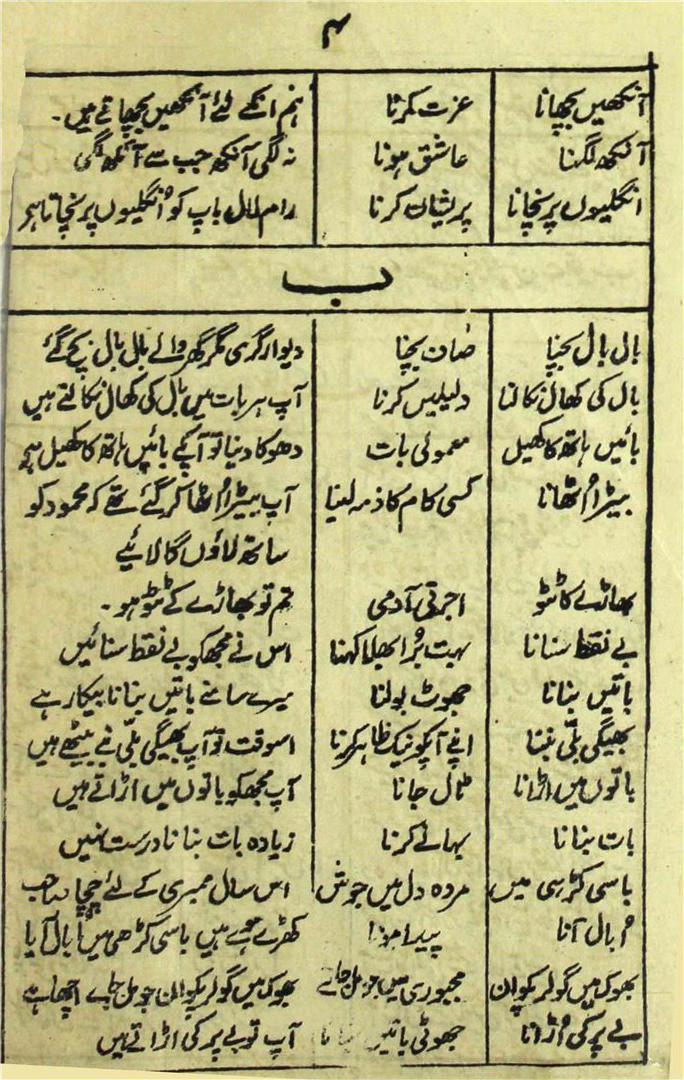 ۴
آنکھیں بچھانا عزت کرنا ہم انکے لئے آنکھیں بچھاتے ہیں۔
آنکھ لگنا عاشق ہونا نہ لگی آنکھ جب سے آنکھ لگی
انگلیوں پر نچانا پریشان کرنا رام لال باپ کو اُنگلیوں پر نچاتا ہے
ب
بال بال بچنا صاف بچنا دیوار گری مگر گھر والے بال بال بچ گئے
بال کی کھال نکالنا دلیلیں کرنا آپ ہر بات میں بال کی کھال نکالتے ہیں
بائیں ہاتھ کا کھیل معمولی بات دھوکا دینا تو آپکے بائیں ہاتھ کا کھیل ہے
بیڑا اُٹھانا کسی کام کا ذمہ لینا آپ بیڑا اُٹھا کر گئے تھے کہ محمود کو
ساتھ لاؤں گا لائیے
بھاڑے کا ٹٹو اجرتی آدمی تم تو بھاڑے کے ٹٹو ہو۔
بے نقط سنانا بہت بُرا بھلا کہنا اس نے مجھکو بے نقط سنائیں
باتیں بنانا جھوٹ بولنا میرے سامنے باتیں بنانا بیکار ہے
بھیگی بلّی بننا اپنے آپکو نیک ظاہر کرنا اسوقت تو آپ بھیگی بلّی بنے بیٹھے ہیں
باتوں میں اڑانا ٹال جانا آپ مجھکو باتوں میں اڑاتے ہیں
بات بنانا بہانے کرنا زیادہ بات بنانا درست نہیں
باسی کڑہی میں مردہ دل میں جوش اس سال ممبری کے لئے چچا صاحب
اُبال آنا پیدا ہونا کھڑے ہوئے ہیں باسی کڑھی میں اُبال آیا
بھوک میں گولر پکوان مجبوری میں جو مل جائے بھوک میں گولر پکوان جو مل جاے اچھا ہے
بے پر کی اُڑانا جھوٹی باتیں آپ تو بے پر کی اڑاتے ہیں